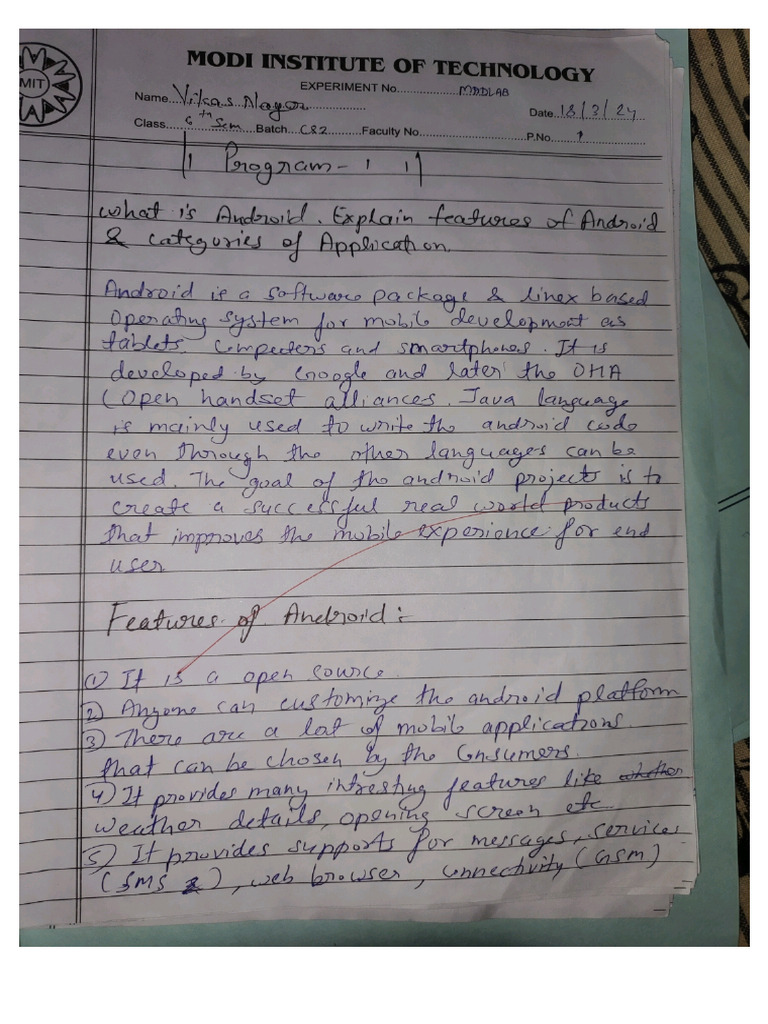 MIT
MODI INSTITUTE OF TECHNOLOGY
EXPERIMENT No. MADLAB
Name Vikas Nagar
Date 18/3/24
Class 6th Sem Batch CS2 Faculty No.
P.No. 1
Program - 1
What is Android. Explain features of Android
& categories of Application.
Android is a software package & linex based
operating system for mobile development as
tablets computers and smartphones. It is
developed by Google and later the OHA
(Open handset alliances. Java language
is mainly used to write the android code
even through the other languages can be
used. The goal of the android projects is to
create a successful real world products
that improves the mobile experience for end
user
Features of Android :-
1) It is a open source.
2) Anyone can customize the android platform
3) There are a lot of mobile applications
that can be chosen by the Consumers.
4) It provides many intresting features like whether
weather details, opening screen etc.
5) It provides supports for messages, services
(SMS), web browser, connectivity (GSM)